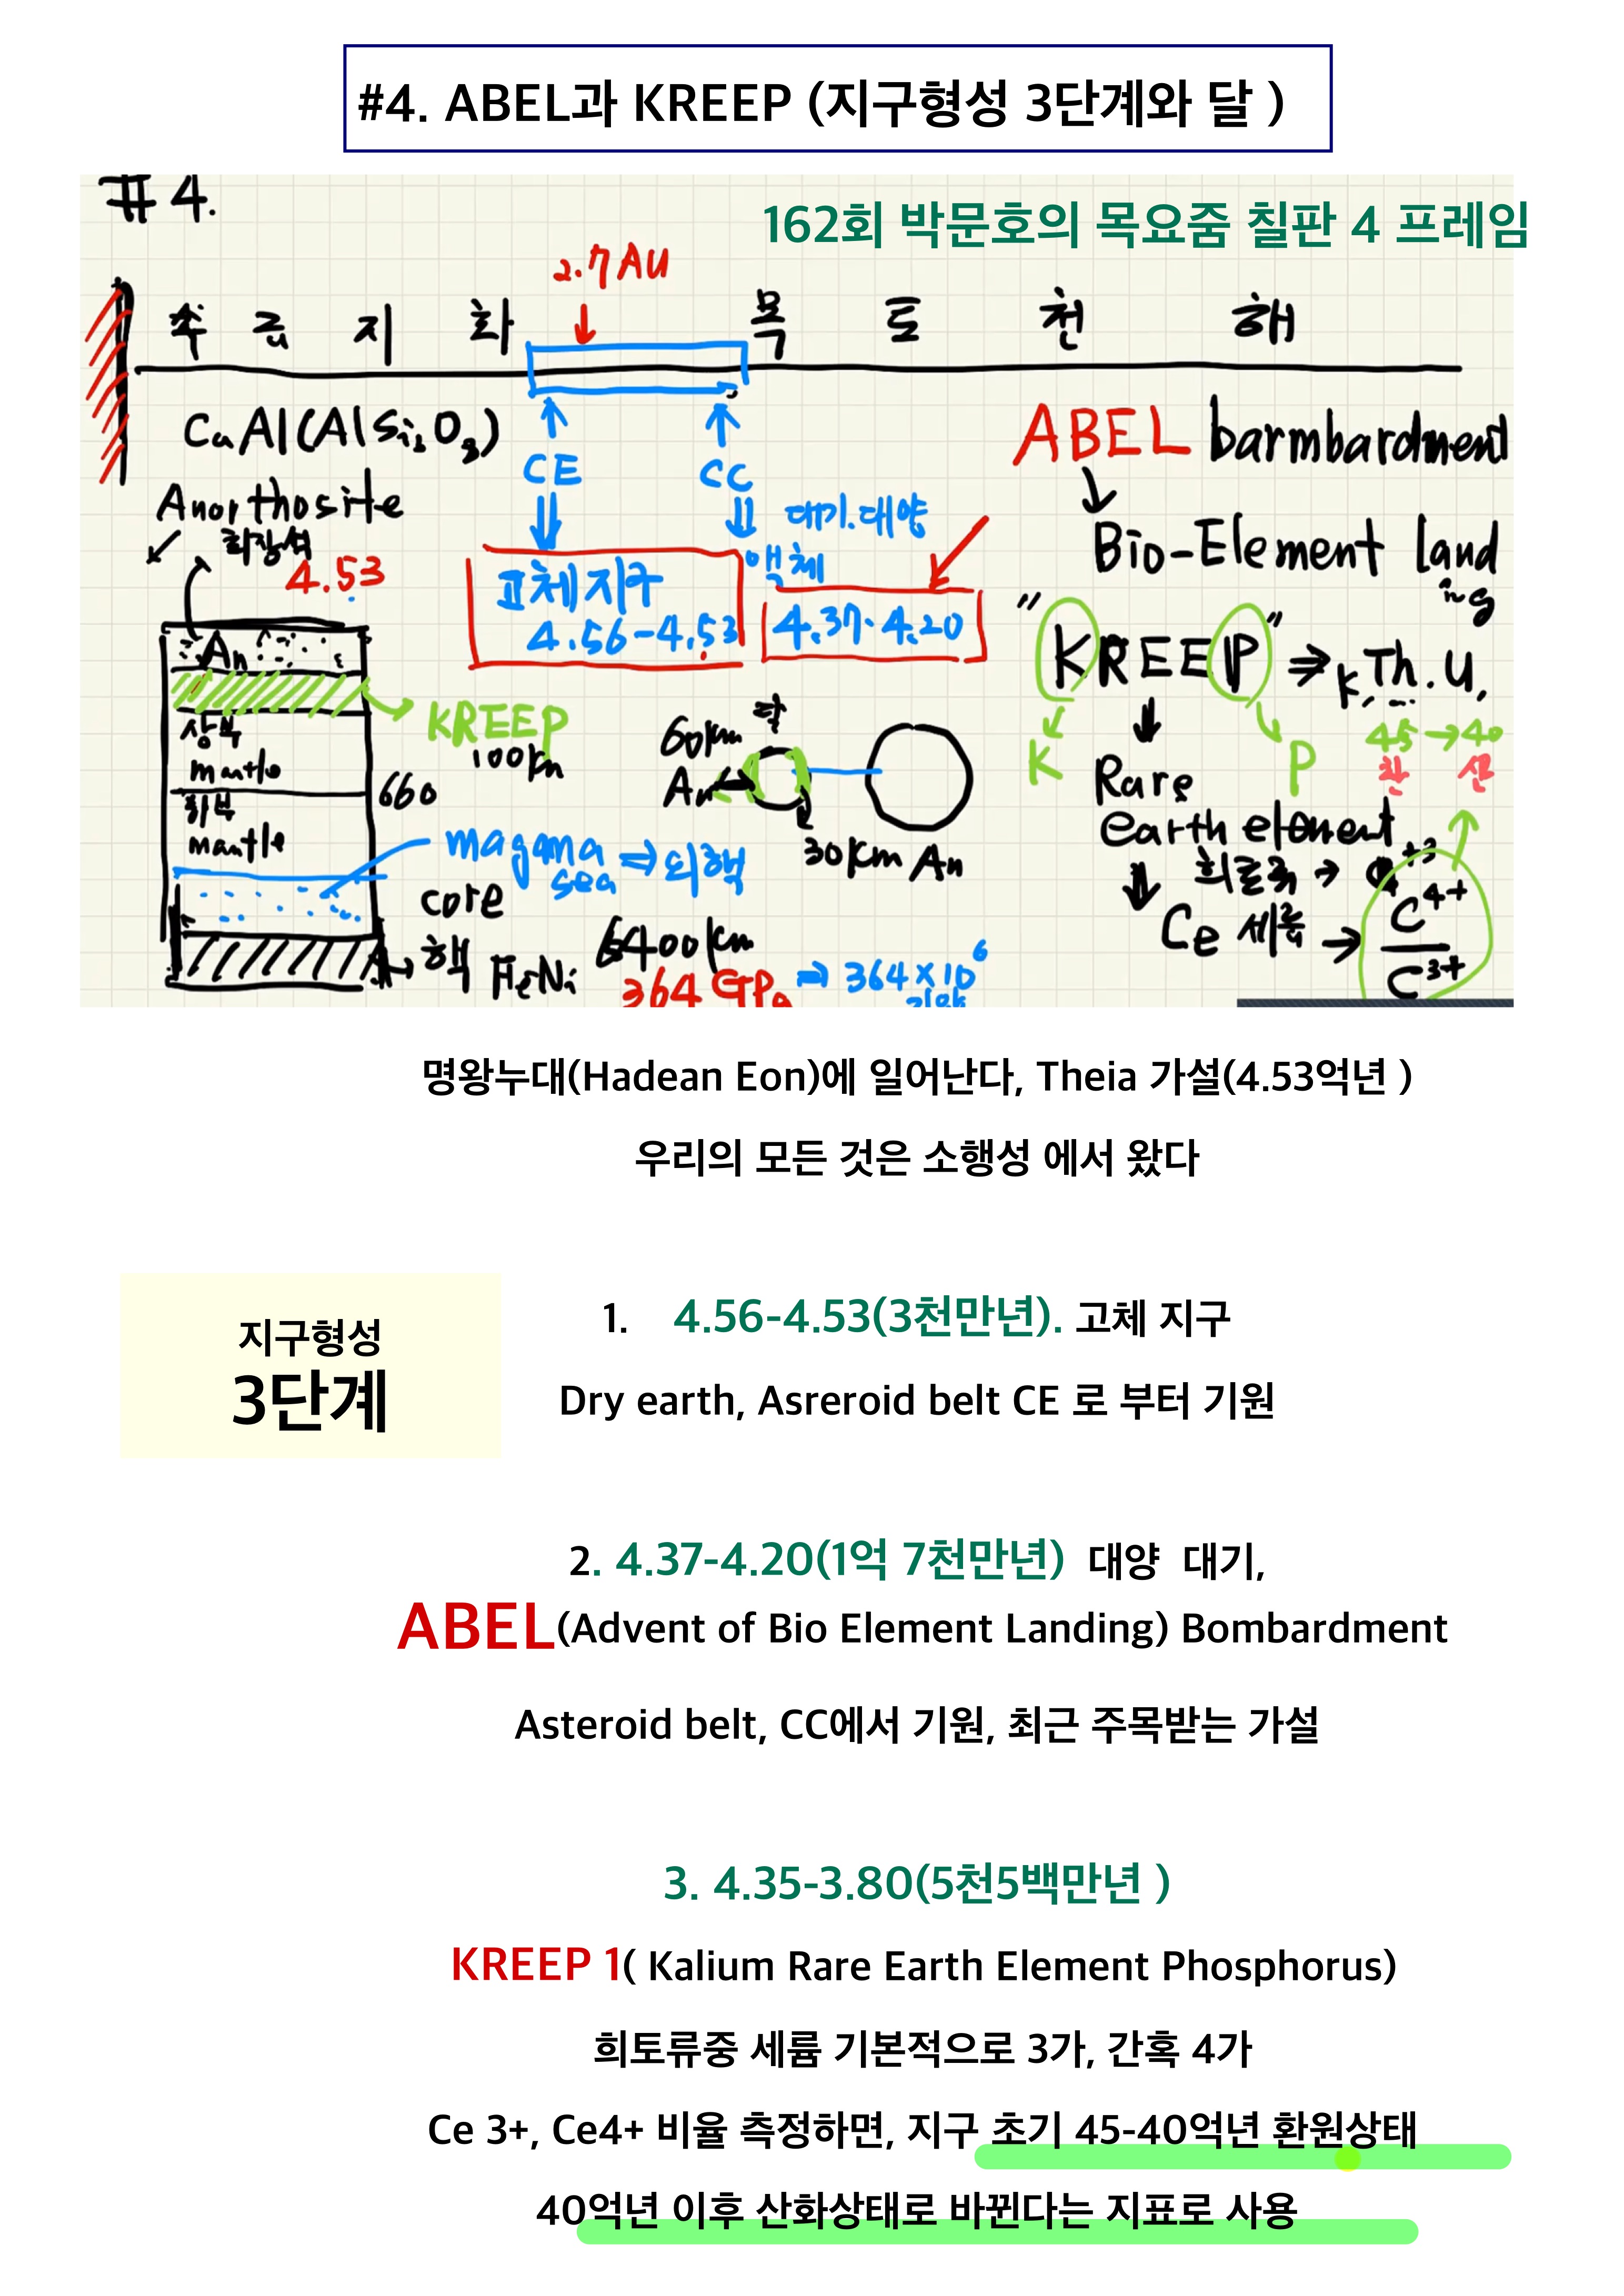 #4. ABEL과 KREEP (지구형성 3단계와 달 )
#4.
162회 박문호의 목요줌 칠판 4 프레임
2.7AU
수 금 지 화 목 토 천 해
CaAl(AlSi2O3)
CE
CC
ABEL barmbardment
Anorthosite
회장석
4.53
대기.대양
액체
Bio-Element land
ing
고체지구
4.56-4.53
4.37-4.20
"KREEP" ⇒ K, Th.U,
An
KREEP
100km
상부
mantle
660
하부
mantle
달
60km
An
30km An
K
P
45 → 40
환 산
Rare
earth element
희토류 → +3
magma
sea ⇒ 외핵
core
Ce 세륨 → C4+
C3+
핵 FeNi
6400km
364 GPa ⇒ 364×10^6
명왕누대(Hadean Eon)에 일어난다, Theia 가설(4.53억년 )
우리의 모든 것은 소행성 에서 왔다
지구형성
3단계
1. 4.56-4.53(3천만년). 고체 지구
Dry earth, Asreroid belt CE 로 부터 기원
2. 4.37-4.20(1억 7천만년) 대양 대기,
ABEL(Advent of Bio Element Landing) Bombardment
Asteroid belt, CC에서 기원, 최근 주목받는 가설
3. 4.35-3.80(5천5백만년 )
KREEP 1( Kalium Rare Earth Element Phosphorus)
희토류중 세륨 기본적으로 3가, 간혹 4가
Ce 3+, Ce4+ 비율 측정하면, 지구 초기 45-40억년 환원상태
40억년 이후 산화상태로 바뀐다는 지표로 사용